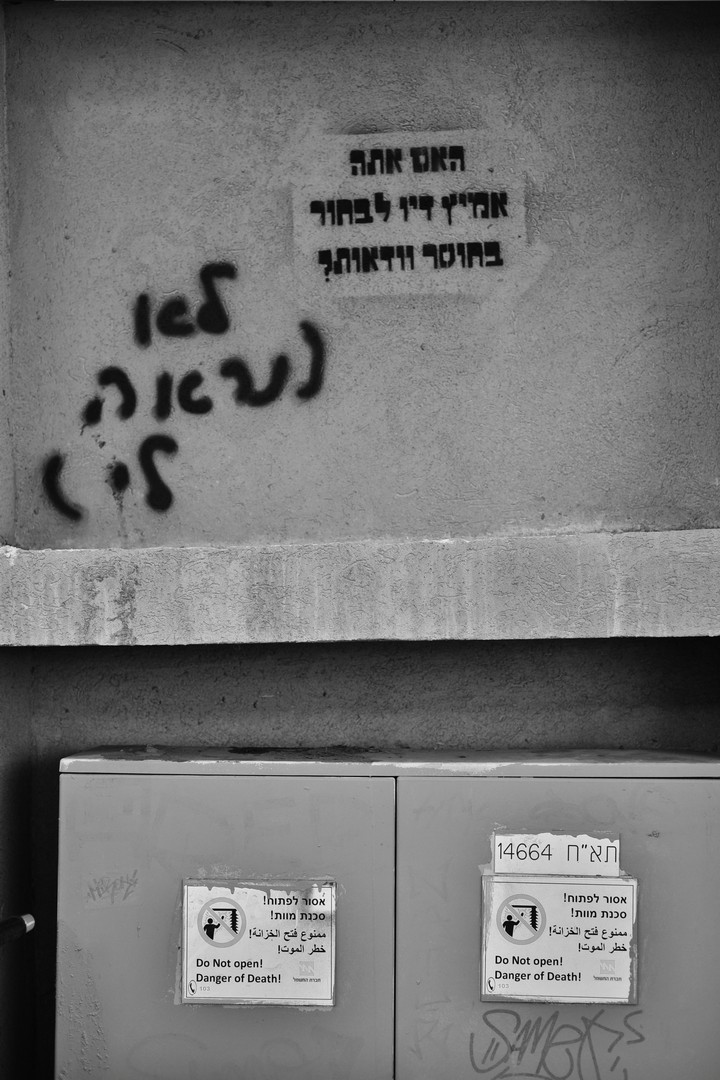 האם אתה
אמיץ דיו לבחור
בחוסר וודאות?
לא
(נראה
לי)
אסור לפתוח!
סכנת מוות!
ممنوع فتح الخزانة!
خطر الموت!
Do Not open!
Danger of Death!
103
חברת החשמל
תא"ח 14664
אסור לפתוח!
סכנת מוות!
ممنوع فتح الخزانة!
خطر الموت!
Do Not open!
Danger of Death!
103
חברת החשמל